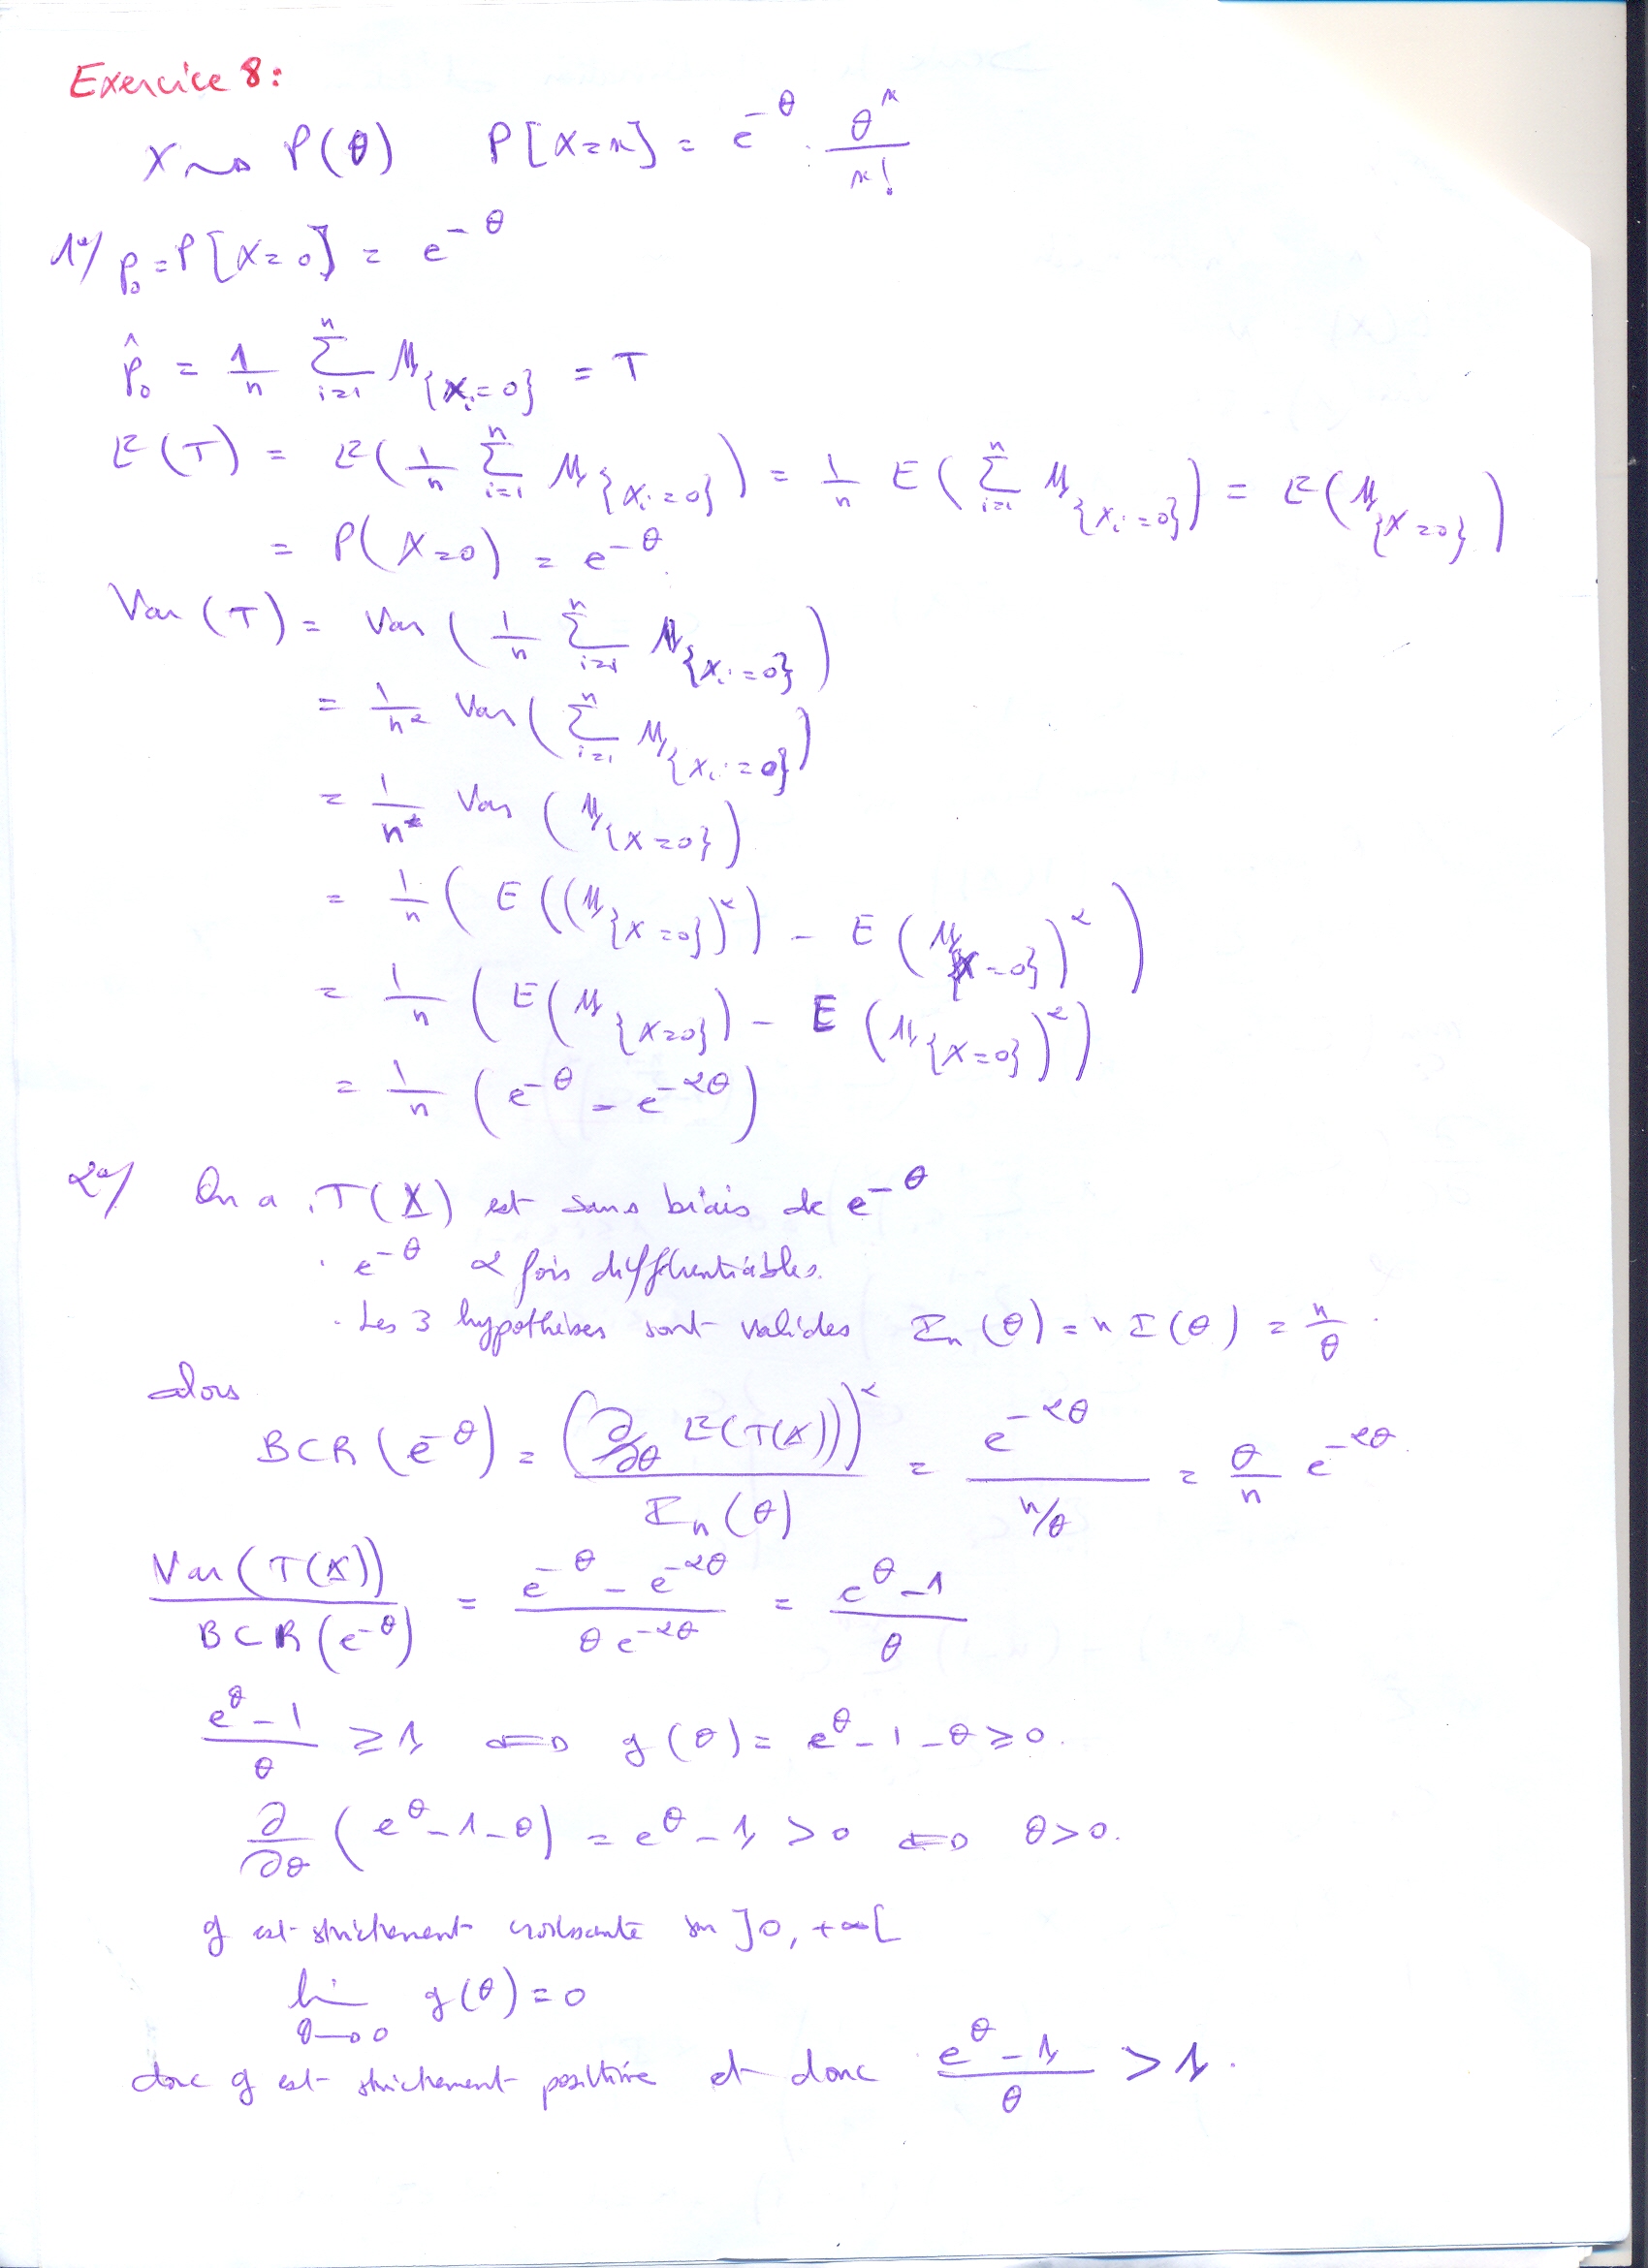 Exercice 8:
X ⇝ P(θ) P[X=x] = e^{-θ} . θ^x / x!
1°/ p₀ = P[X=0] = e^{-θ}
p̂₀ = 1/n ∑_{i=1}^n 𝟙_{X_i=0} = T
E(T) = E(1/n ∑_{i=1}^n 𝟙_{X_i=0}) = 1/n E(∑_{i=1}^n 𝟙_{X_i=0}) = E(𝟙_{X=0})
= P(X=0) = e^{-θ}.
Var(T) = Var(1/n ∑_{i=1}^n 𝟙_{X_i=0})
= 1/n² Var(∑_{i=1}^n 𝟙_{X_i=0})
= 1/n² Var(𝟙_{X=0})
= 1/n (E((𝟙_{X=0})²) - E(𝟙_{X=0})²)
= 1/n (E(𝟙_{X=0}) - E(𝟙_{X=0})²)
= 1/n (e^{-θ} - e^{-2θ})
2°/ On a . T(X) est sans biais de e^{-θ}
. e^{-θ} 2 fois différentiables.
. Les 3 hypothèses sont valides I_n(θ) = n I(θ) = n/θ .
alors
BCR(e^{-θ}) = (∂/∂θ E(T(X)))² / I_n(θ) = e^{-2θ} / n/θ = θ/n e^{-2θ}.
Var(T(X)) / BCR(e^{-θ}) = e^{-θ} - e^{-2θ} / θ e^{-2θ} = e^θ - 1 / θ
e^θ - 1 / θ ≥ 1 ⇔ g(θ) = e^θ - 1 - θ ≥ 0.
∂/∂θ (e^θ - 1 - θ) = e^θ - 1 > 0 ⇔ θ > 0.
g est strictement croissante sur ]0, +∞[
lim_{θ→0} g(θ) = 0
donc g est strictement positive et donc e^θ - 1 / θ > 1.